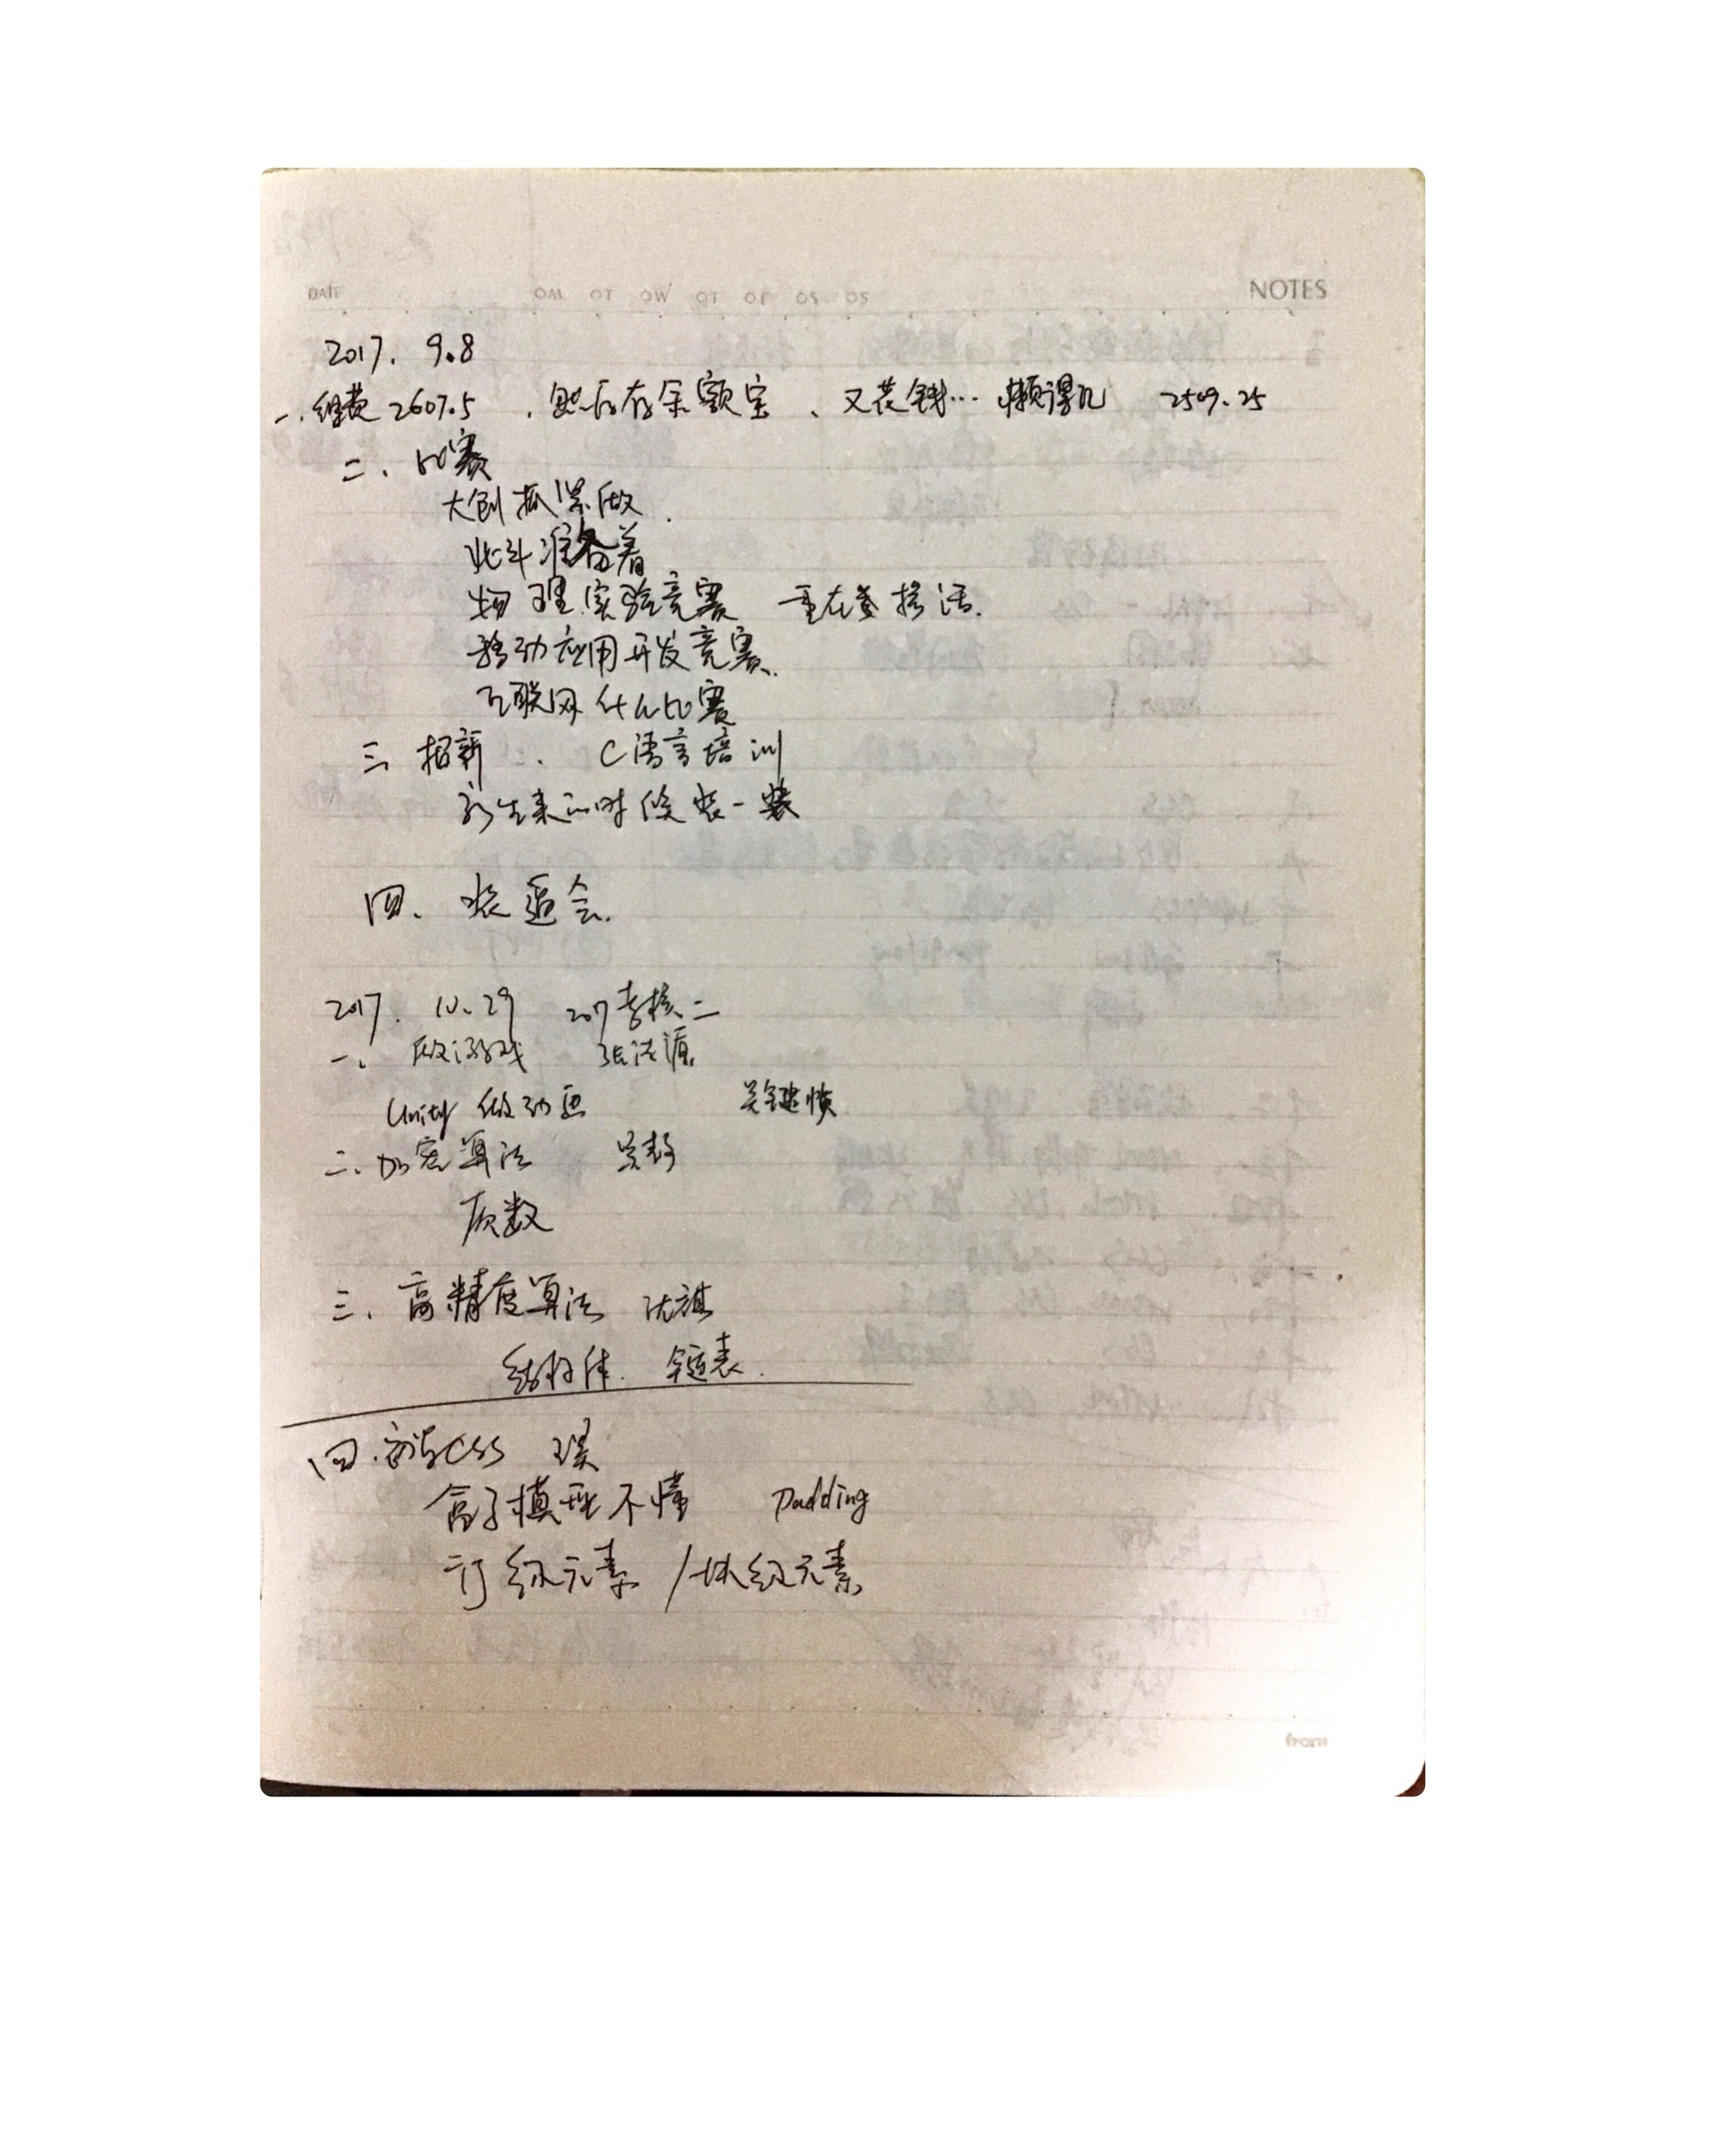 DATE NOTES
2017. 9.8
一、组费2607.5 、然后存余额宝、又花钱… 懒得记 2509.25
二、比赛
大创抓紧做.
北斗准备着
物理实验竞赛 重在
移动应用开发竞赛、
互联网什么比赛
三 招新 、 C语言培训
新生来的时候装一装
四、
2017. 10.29 207考核二
一、 做游戏
Unity 做动画 关键帧
二、加密算法
质数
三、高精度算法 沈祺
结构体. 链表.
四. CSS
盒子模型不懂 Padding
行级元素 /块级元素
from